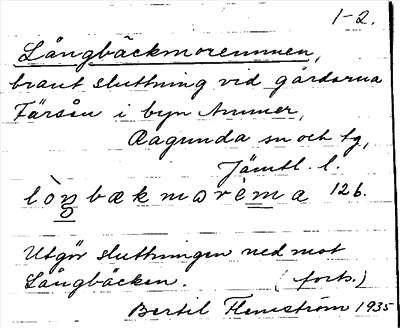 1-2.
Långbäckmoremmen,
brant sluttning vid gårdarna
Färsån i byn Ammer,
Ragunda sn och tg,
Jämtl. l.
lòŋbækmorèma 126.
Utgör sluttningen ned mot
Långbäcken. (forts.)
Bertil Flemström 1935